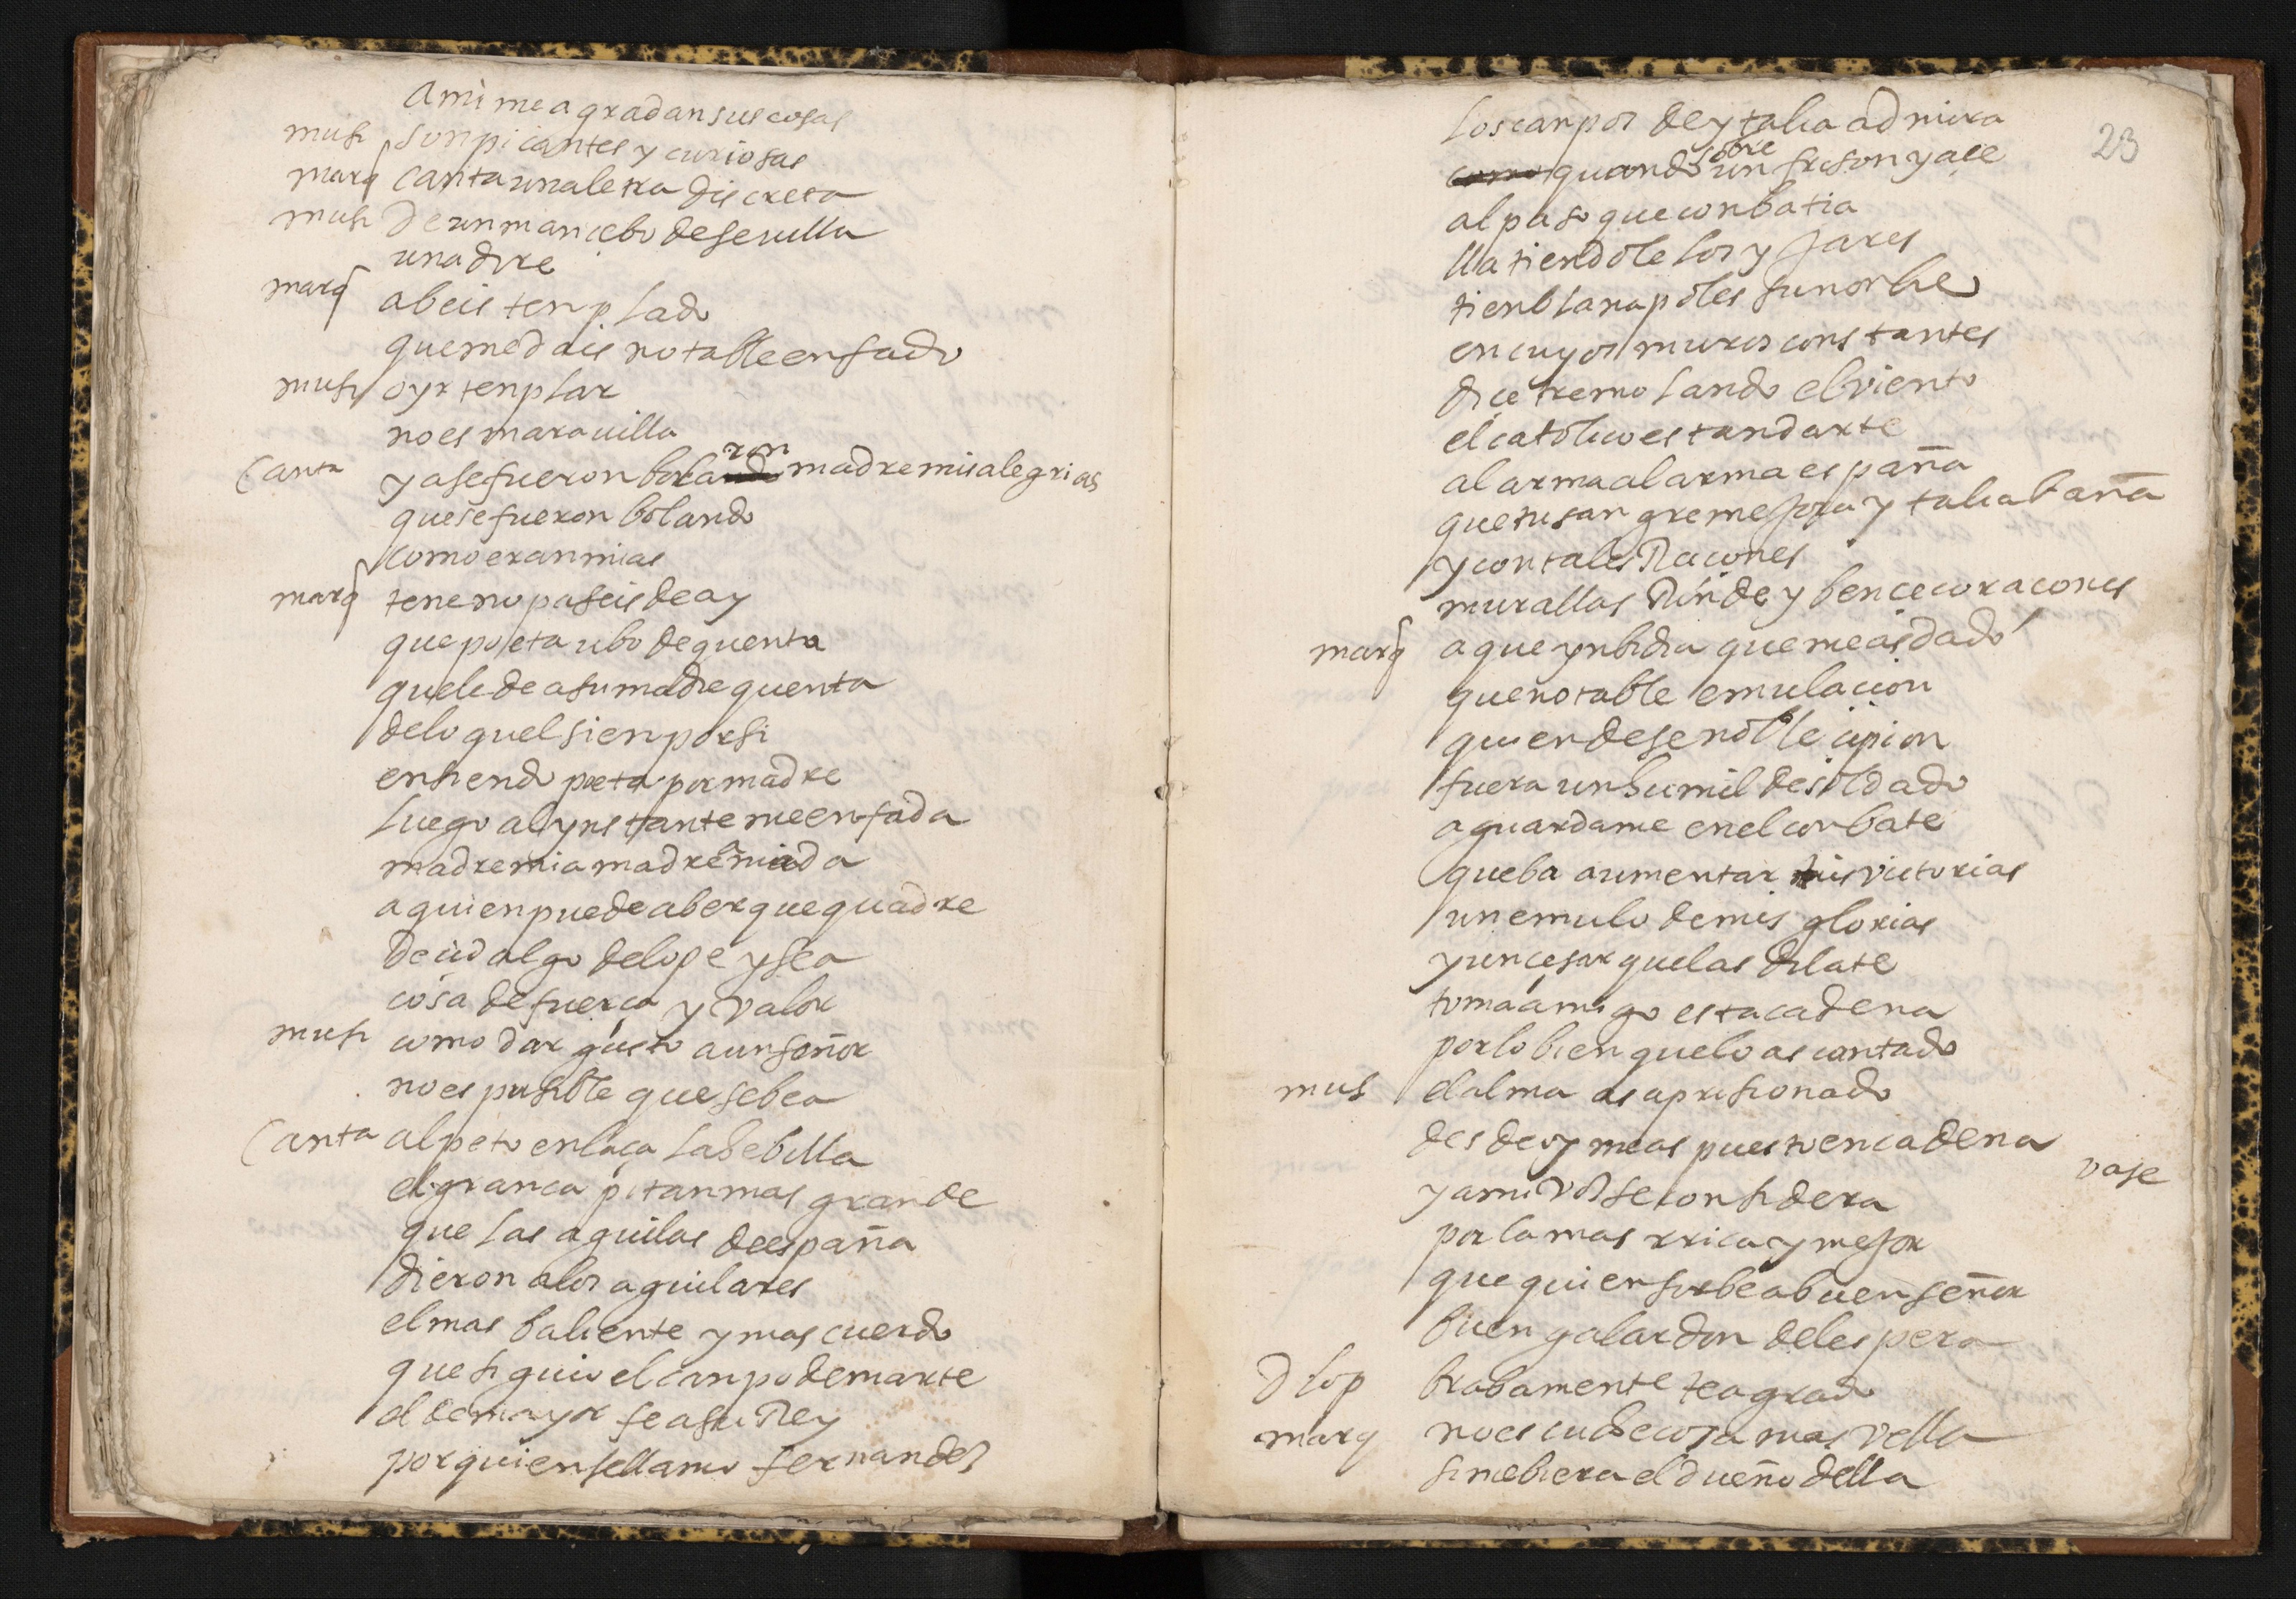 a mi me agradan sus cosas
musi son picantes y curiosas
marq canta una letra discreta
musi de un mancebo de seuilla
una dire
marq abeis tenplado
que me dais notable enfado
musi oyr tenplar
no es marauilla
Canta ya se fueron bolando ron madre mis alegrias
que se fueron bolando
como eran mias
marq tene no paseis de ay
que poeta ubo de quenta
que le de a su madre quenta
de lo quel sien por si
entiendo poeta por madre
luego al ynstante me enfada
madre mia madre amada
a quien puede aber que quadre
decid algo de lope y sea
cosa de fuerça y valor
musi como dar gusto a un señor
no es pusible que se bea
Canta al peto enlaça la hebilla
el gran capitan mas grande
que las aguilas de españa
dieron a los aguilares
el mas baliente y mas cuerdo
que siguio el canpo de marte
el de mayor fe a su Rey
por quien se llamo fernandez
23
los canpos de ytalia admira
como quando sobre un frison yace
al paso que conbatia
llatiendole los yjares
tienbla napoles su norbe
en cuyos muros constantes
dice tremolando el viento
el catolico estandarte
al arma al arma españa
que tu sangre mejora y talia baña
y con tales Racones
murallas Rinde y bence coracones
marq a que ynbidia que me as dado
que notable emulacion
quien dese noble cipion
fuera un humilde soldado
aguardame en el conbate
que ba aumentar tus victorias
un emulo de mis glorias
y un cesar que las dilate
toma amigo esta cadena
por lo bien que lo as cantado
mus el alma as aprisionado
desde oy me as puesto en cadena
vase
y a mi vos se considera
por la mas rrica y mejor
que quien sirbe a buen señor
buen galardon del espera
D lop brabamente te agrado
marq no escuche cosa mas vella
si me biera el dueño della